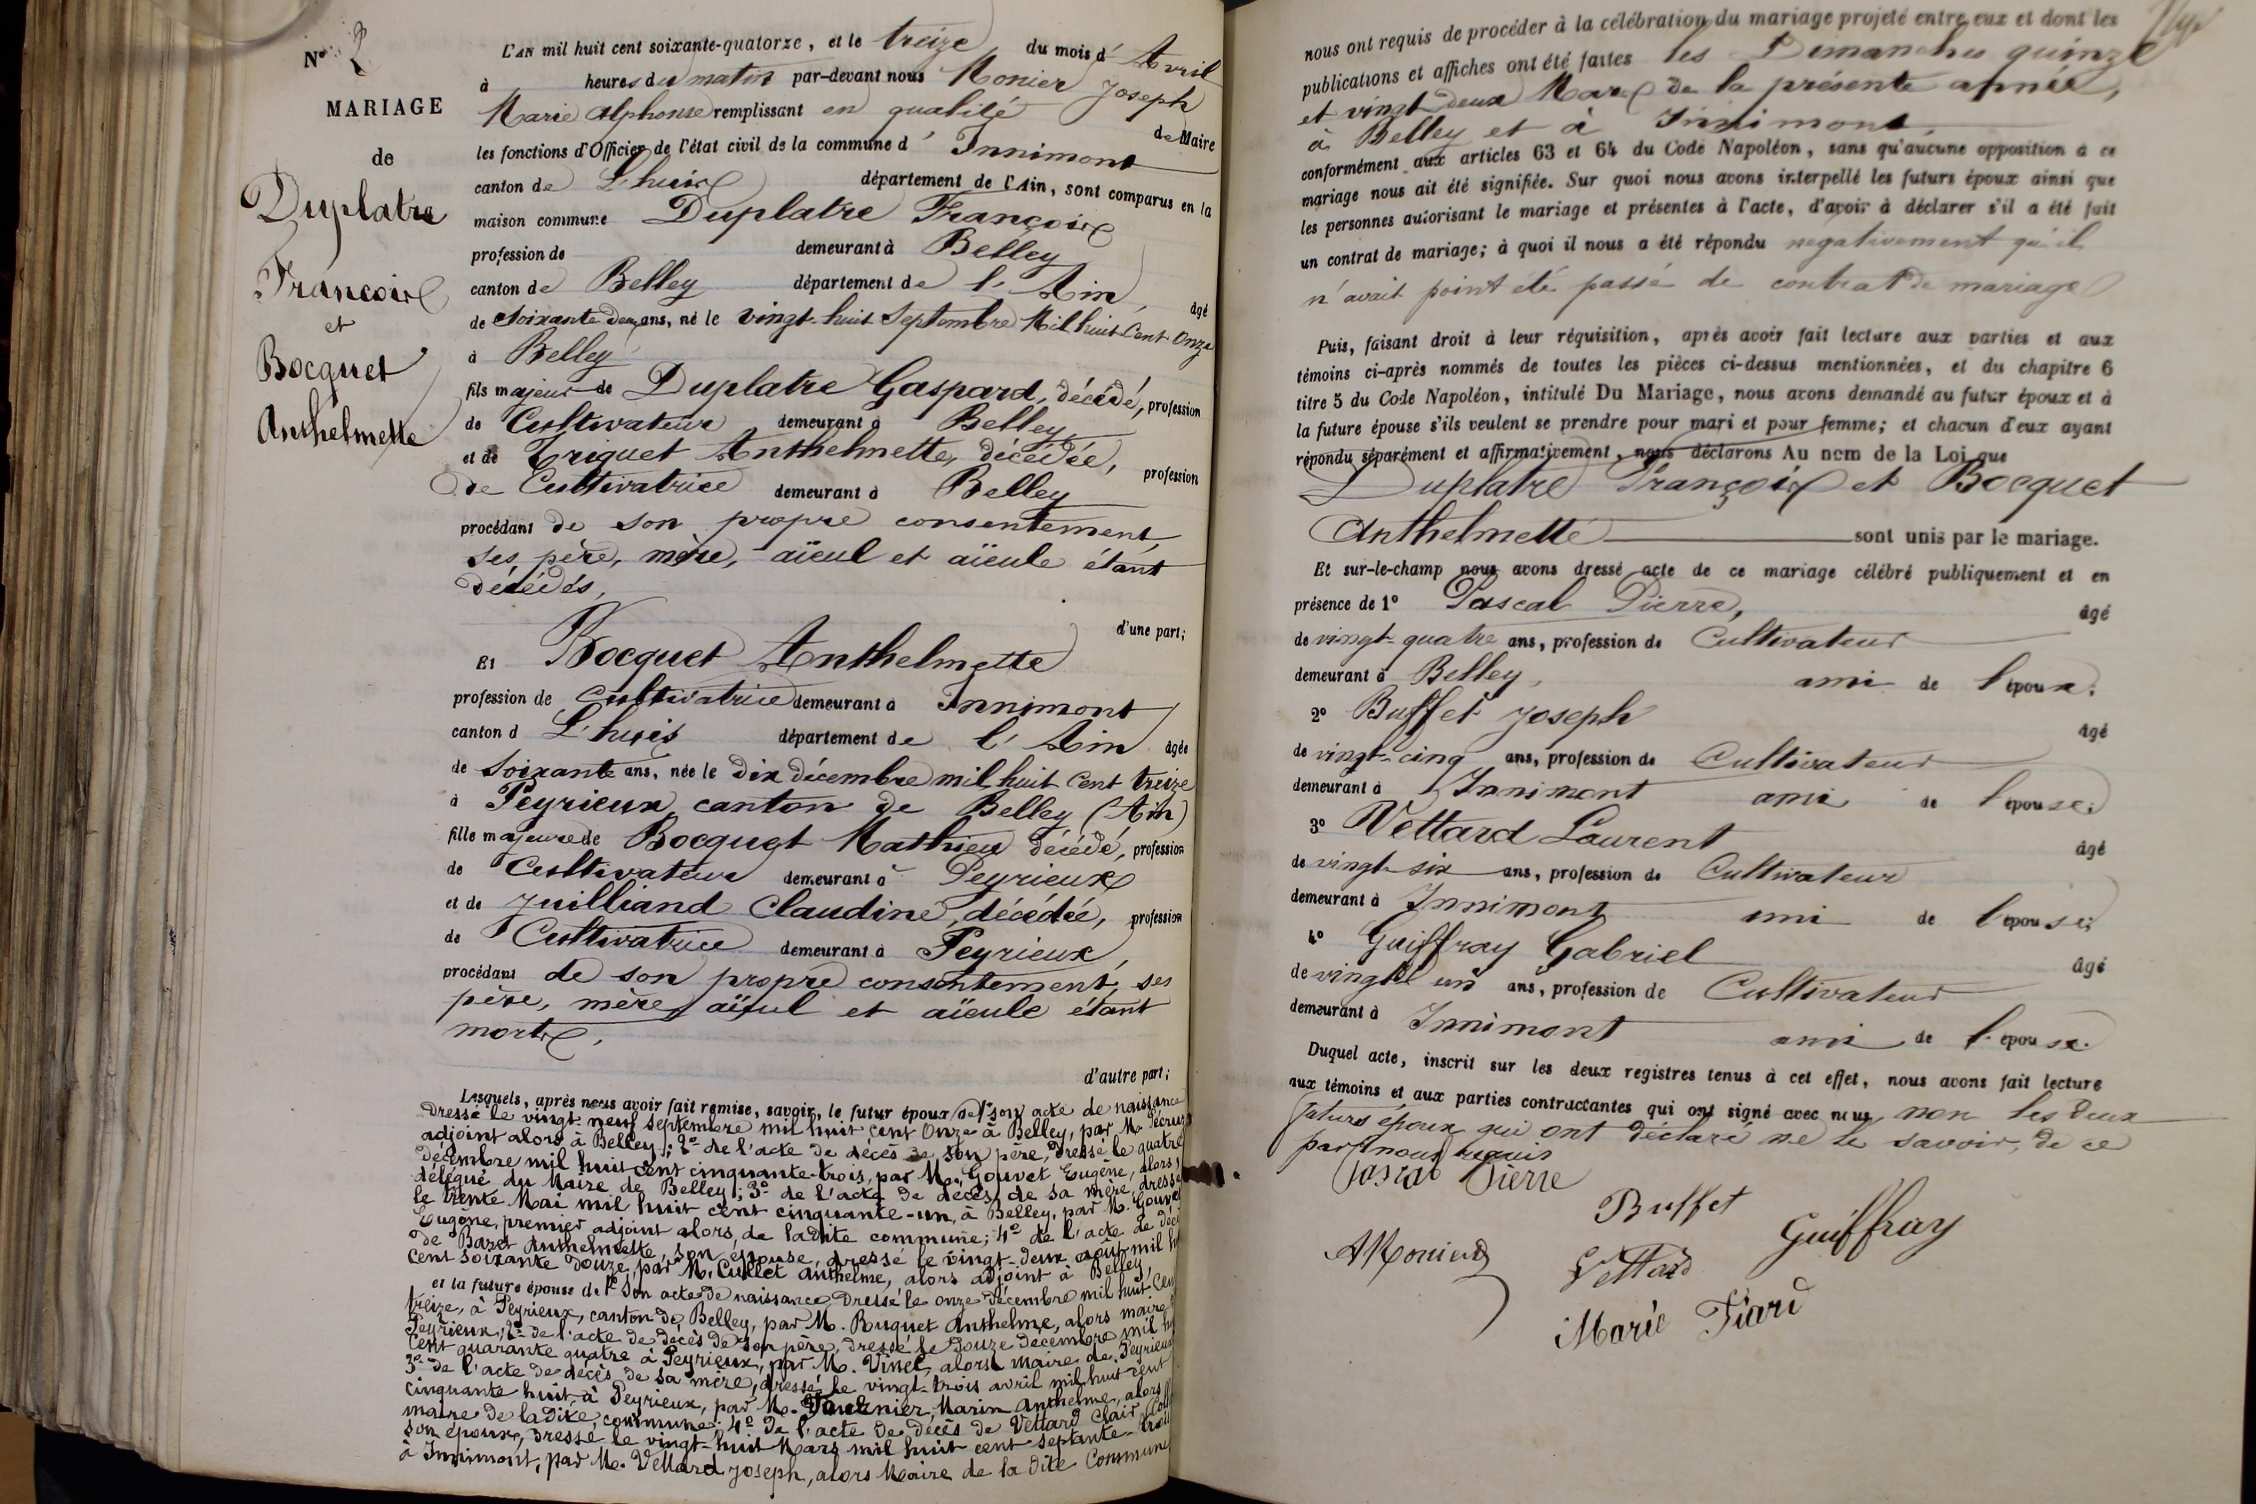 N° 2
MARIAGE
de
Duplatre
François
et
Bocquet
Anthelmette
L'AN mil huit cent soixante-quatorze, et le treize du mois d'Avril
à heures du matin par-devant nous Monier Joseph
Marie Alphonse remplissant en qualité de Maire
les fonctions d'Officier de l'état civil de la commune d'Innimont
canton de L'huis département de l'Ain, sont comparus en la
maison commune Duplatre François
profession de demeurant à Belley
canton de Belley département de l'Ain, âgé
de soixante deux ans, né le vingt-huit Septembre Mil huit Cent onze
à Belley
fils majeur de Duplatre Gaspard, décédé, profession
de Cultivateur demeurant à Belley
et de Triquet Anthelmette, décédée, profession
de Cultivatrice demeurant à Belley
procédant de son propre consentement,
ses père, mère, aïeul et aïeule étant
décédés,
d'une part;
Et Bocquet Anthelmette
profession de Cultivatrice demeurant à Innimont
canton d L'huis département de l'Ain âgée
de soixante ans, née le dix décembre mil huit cent treize
à Peyrieux, canton de Belley (Ain)
fille majeure de Bocquet Mathieu décédé, profession
de Cultivateur demeurant à Peyrieux
et de Juilliand Claudine, décédée, profession
de Cultivatrice demeurant à Peyrieux,
procédant de son propre consentement, ses
père, mère, aïeul et aïeule étant
morts,
d'autre part;
Lesquels, après nous avoir fait remise, savoir, le futur époux de 1° son acte de naissance
dressé le vingt-neuf septembre mil huit cent onze à Belley, par M.
adjoint alors à Belley; 2° de l'acte de décès de son père, dressé le quatre
décembre mil huit cent cinquante-trois, par M. Gouvet Eugène, alors
délégué du Maire de Belley; 3° de l'acte de décès de sa mère, dressé
le trente Mai mil huit cent cinquante-un, à Belley, par M. Gouvet
Eugène, premier adjoint alors, de ladite commune; 4° de l'acte de décès
de Baret Anthelmette, son épouse, dressé le vingt-deux août mil
cent soixante douze, par M. Cullet Anthelme, alors adjoint à Belley,
et la future épouse de 1° son acte de naissance dressé le onze décembre mil huit cent
treize, à Peyrieux, canton de Belley, par M. Buguet Anthelme, alors maire
Peyrieux; 2° de l'acte de décès de son père, dressé le douze décembre mil
cent quarante quatre à Peyrieux, par M. Vinet, alors maire de Peyrieux
3° de l'acte de décès de sa mère, dressé le vingt-trois avril mil huit cent
cinquante huit, à Peyrieux, par M. Marin Anthelme, alors
maire de ladite commune; 4° de l'acte de décès de Vettard Clair
son époux, dressé le vingt-huit Mars mil huit cent septante-trois
à Innimont, par M. Vettard Joseph, alors Maire de la dite Commune
nous ont requis de procéder à la célébration du mariage projeté entre eux et dont les
publications et affiches ont été faites les Dimanches quinze
et vingt deux Mars de la présente année,
à Belley et à Innimont,
conformément aux articles 63 et 64 du Code Napoléon, sans qu'aucune opposition à ce
mariage nous ait été signifiée. Sur quoi nous avons interpellé les futurs époux ainsi que
les personnes autorisant le mariage et présentes à l'acte, d'avoir à déclarer s'il a été fait
un contrat de mariage; à quoi il nous a été répondu negativement qu'il
n'avait point été passé de contrat de mariage
Puis, faisant droit à leur réquisition, après avoir fait lecture aux parties et aux
témoins ci-après nommés de toutes les pièces ci-dessus mentionnées, et du chapitre 6
titre 5 du Code Napoléon, intitulé Du Mariage, nous avons demandé au futur époux et à
la future épouse s'ils veulent se prendre pour mari et pour femme; et chacun d'eux ayant
répondu séparément et affirmativement, nous déclarons Au nom de la Loi que
Duplatre François et Bocquet
Anthelmette sont unis par le mariage.
Et sur-le-champ nous avons dressé acte de ce mariage célébré publiquement et en
présence de 1° Pascal Pierre, âgé
de vingt-quatre ans, profession de Cultivateur
demeurant à Belley, ami de l'époux;
2° Buffet Joseph âgé
de vingt-cinq ans, profession de Cultivateur
demeurant à Innimont ami de l'épouse;
3° Vettard Laurent âgé
de vingt-six ans, profession de Cultivateur
demeurant à Innimont ami de l'épouse;
4° Guiffray Gabriel âgé
de vingt un ans, profession de Cultivateur
demeurant à Innimont ami de l'épouse.
Duquel acte, inscrit sur les deux registres tenus à cet effet, nous avons fait lecture
aux témoins et aux parties contractantes qui ont signé avec nous, non les deux
futurs époux qui ont déclaré ne le savoir, de ce
par nous requis
Pascal Pierre
Buffet
Guiffray
AMonier
Vettard
Marie Fiard